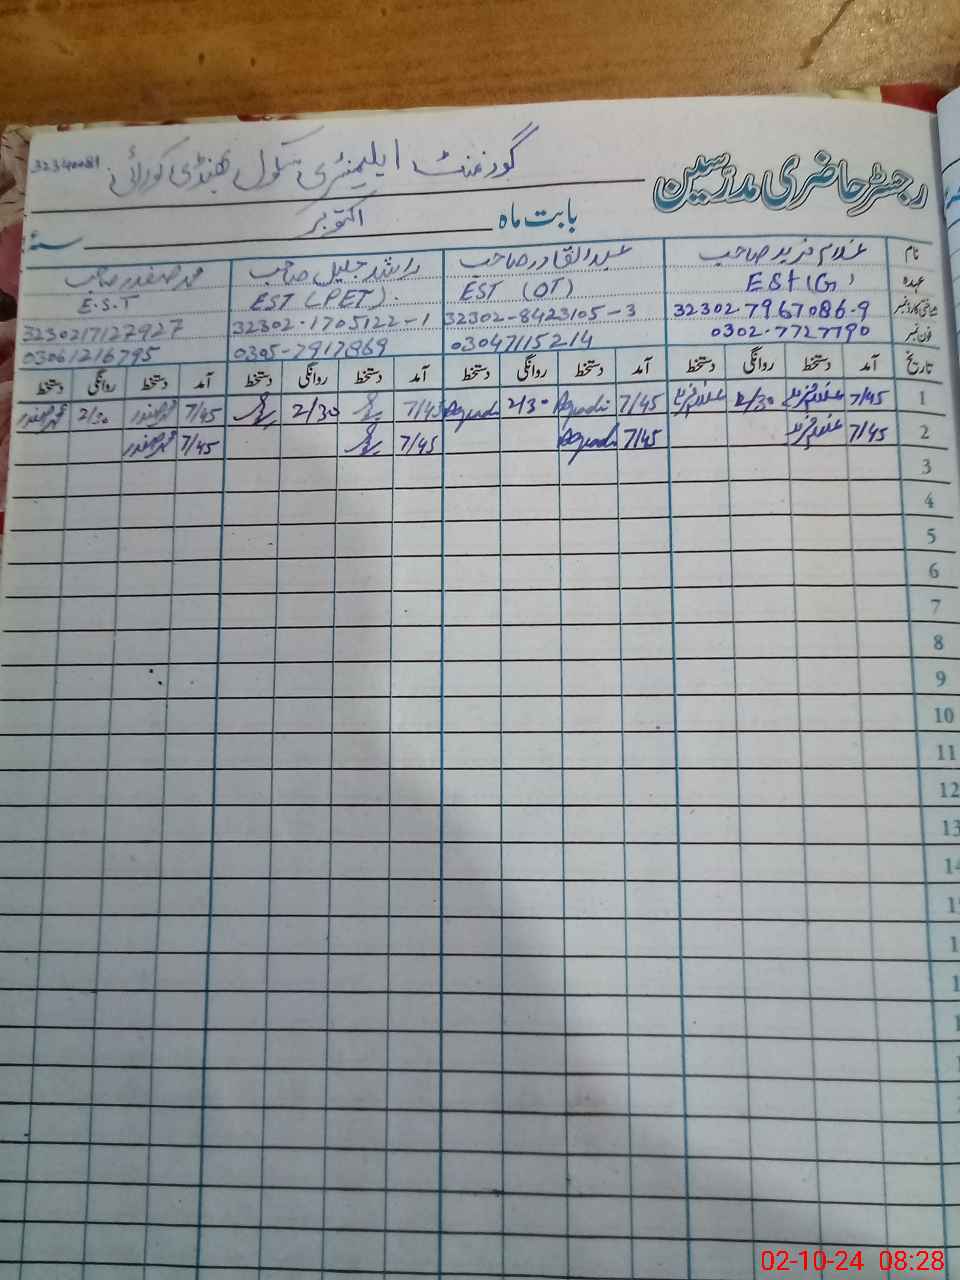 رجسٹر حاضری مدرسین گورنمنٹ ایلیمنٹری سکول 32340081
بابت ماہ اکتوبر سنہ
نام غلام فرید صاحب عبدالقادر صاحب راشد جلیل صاحب محمد صفدر صاحب
عہدہ EST (G) EST (OT) EST (PET). E.S.T
شناختی کارڈ نمبر 32302-7967086-9 32302-8423105-3 32302-1705122-1 3230217127927
فون نمبر 0302-7727790 03047115214 0305-7917869 03061216795
تاریخ آمد دستخط روانگی دستخط آمد دستخط روانگی دستخط آمد دستخط روانگی دستخط آمد دستخط روانگی دستخط
1 7/45 غلام فرید 2/30 غلام فرید 7/45 2/30 7/45 2/30 7/45 محمد صفدر 2/30 محمد صفدر
2 7/45 غلام فرید 7/45 7/45 7/45 محمد صفدر
3
4
5
6
7
8
9
10
11
12
13
02-10-24 08:28